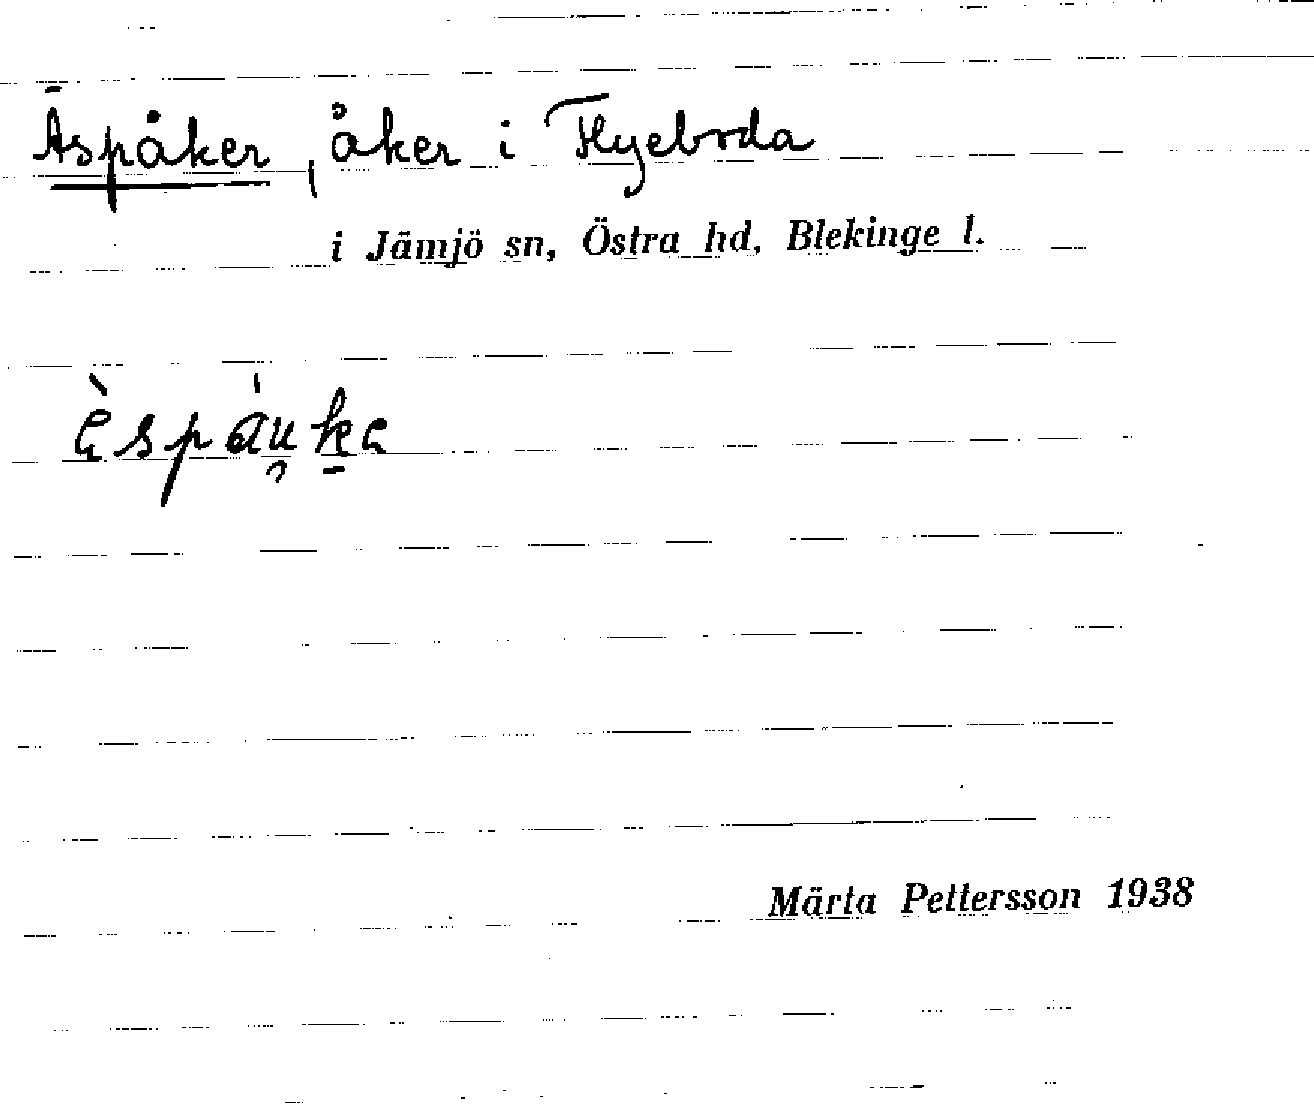 Äspåker, åker i Flyeboda
i Jämjö sn, Östra hd, Blekinge l.
Märta Pettersson 1938